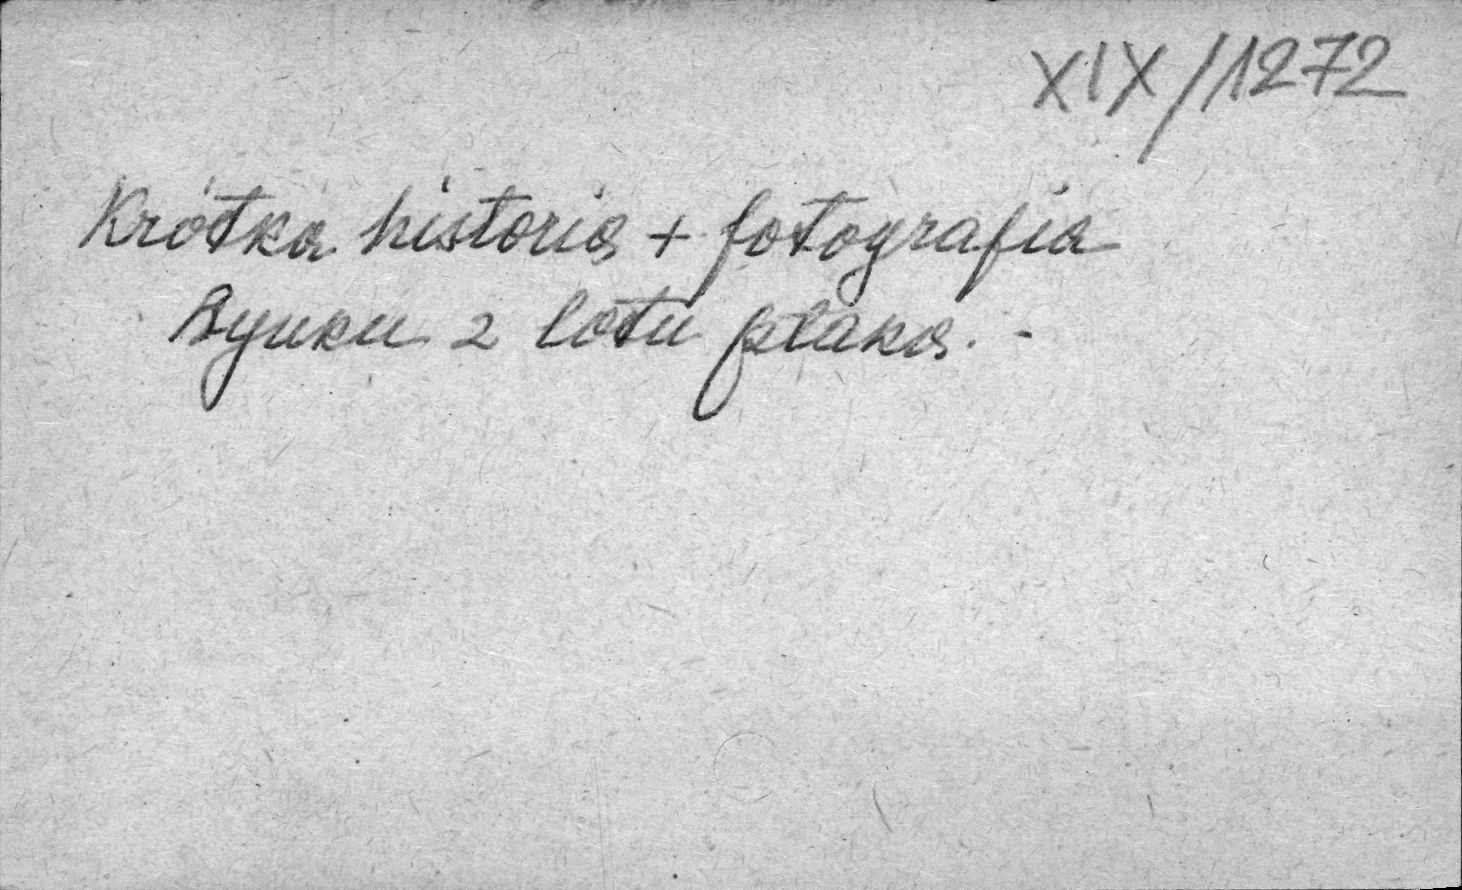 XIX/1272
Krótka historia + fotografia
Rynku z lotu ptaka. -